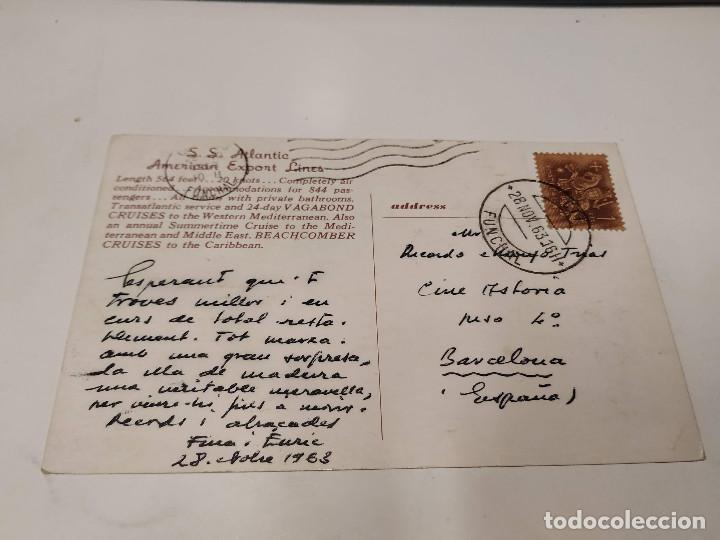 S. S. Atlantic
American Export Lines
Length 564 feet...20 knots...Completely air
conditioned... modations for 844 pas-
sengers...All with private bathrooms.
Transatlantic service and 24-day VAGABOND
CRUISES to the Western Mediterranean. Also
an annual Summertime Cruise to the Medi-
terranean and Middle East. BEACHCOMBER
CRUISES to the Caribbean.
FUNCHAL
Esperant que t
troves millor i en
curs de total resta-
bliment. Tot marxa
amb una gran sorpresa,
la illa de madeira
una veritable meravella,
per viure-hi, fins a morir.
Records i abraçades
Fina i Enric
28. 1963
address
*28 NOV. 63 16H*
FUNCHAL
Mr
Ricardo Trias
Cine Astoria
piso 4º
Barcelona
(España)
todocoleccion.net